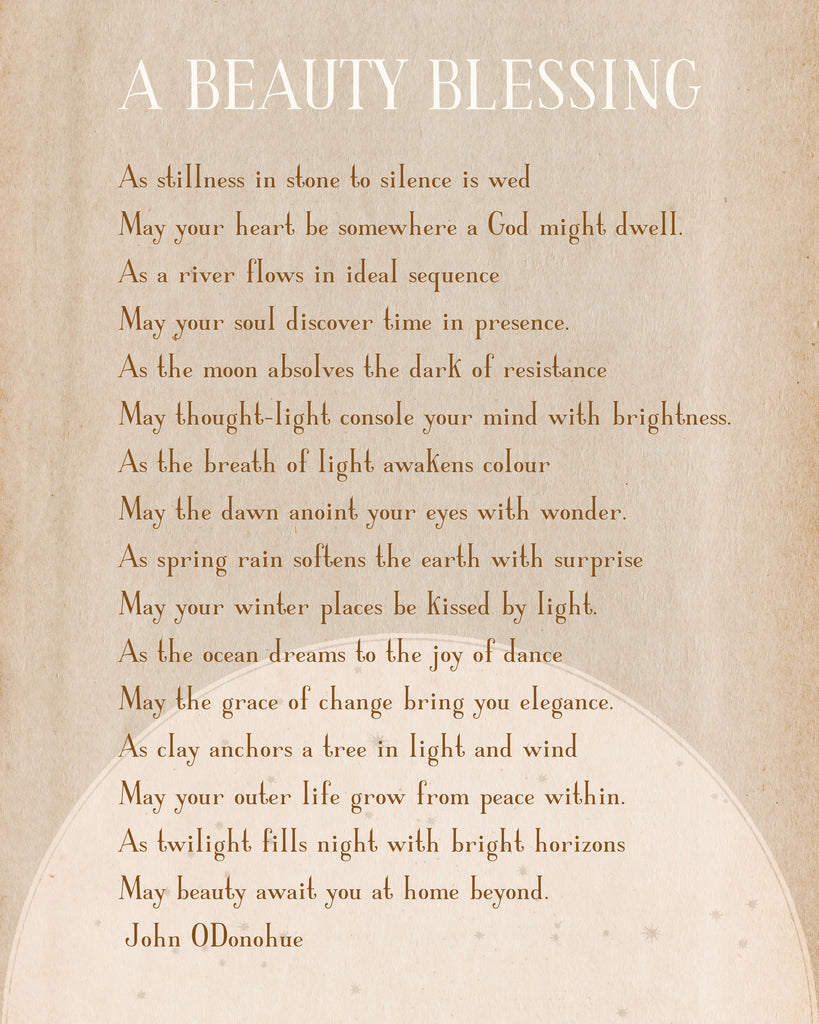 A BEAUTY BLESSING
As stillness in stone to silence is wed
May your heart be somewhere a God might dwell.
As a river flows in ideal sequence
May your soul discover time in presence.
As the moon absolves the dark of resistance
May thought-light console your mind with brightness.
As the breath of light awakens colour
May the dawn anoint your eyes with wonder.
As spring rain softens the earth with surprise
May your winter places be kissed by light.
As the ocean dreams to the joy of dance
May the grace of change bring you elegance.
As clay anchors a tree in light and wind
May your outer life grow from peace within.
As twilight fills night with bright horizons
May beauty await you at home beyond.
John ODonohue